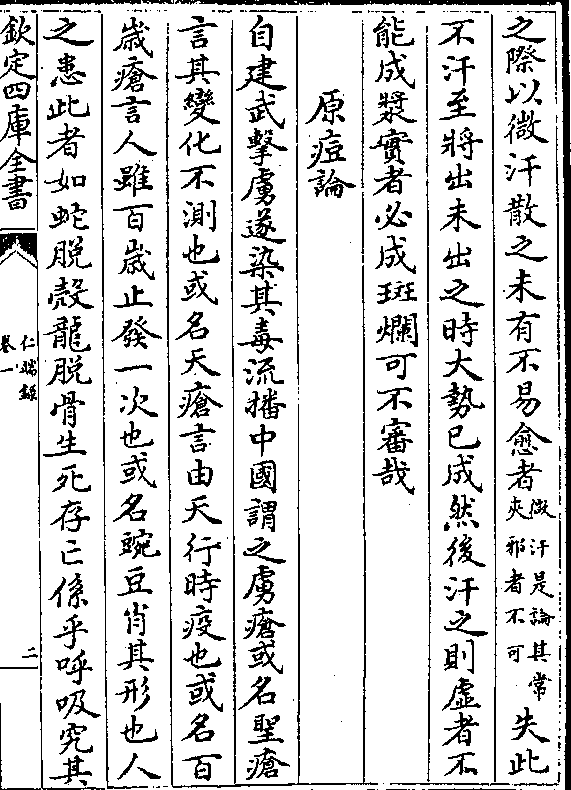 之際以微汗散之未有不易愈者微汗是論其常夾邪者不可失此
不汗至將出未出之時大勢已成然後汗之則虛者不
能成漿實者必成斑爛可不審哉
原痘論
自建武擊虜遂染其毒流播中國謂之虜瘡或名聖瘡
言其變化不測也或名天瘡言由天行時疫也或名百
歲瘡言人雖百歲止發一次也或名豌豆肖其形也人
之患此者如蛇脫殻龍脫骨生死存亡係乎呼吸究其
欽定四庫全書
仁端錄
卷一
二